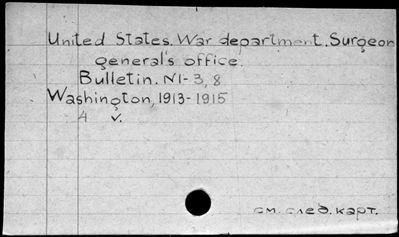 United States. War department. Surgeon
general's office.
Bulletin. N1-3, 8
Washington, 1913-1915
4 v.
см. след. карт.